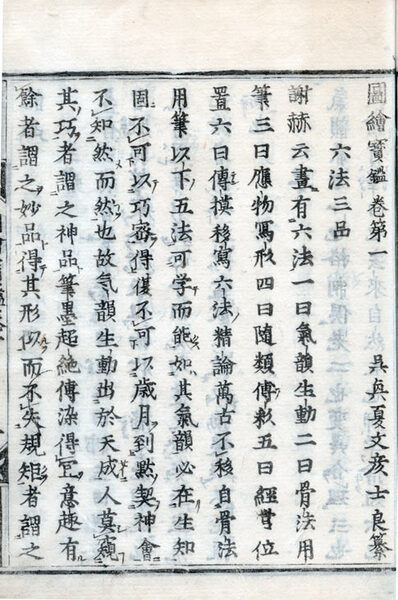 圖繪寶鑑卷第一
吳興夏文彥士良纂
六法三品
謝赫云畫有六法一曰氣韻生動二曰骨法用
筆三曰應物寫形四曰隨類傅彩五曰經營位
置六曰傳摸移寫六法精論萬古不移自骨法
用筆以下五法可学而能如其氣韻必在生知
固不可以巧密得復不可以歲月到默契神會
不知然而然也故气韻生動出於天成人莫窺
其巧者謂之神品筆墨超絶傳染得宜意趣有
餘者謂之妙品得其形似而不失規矩者謂之